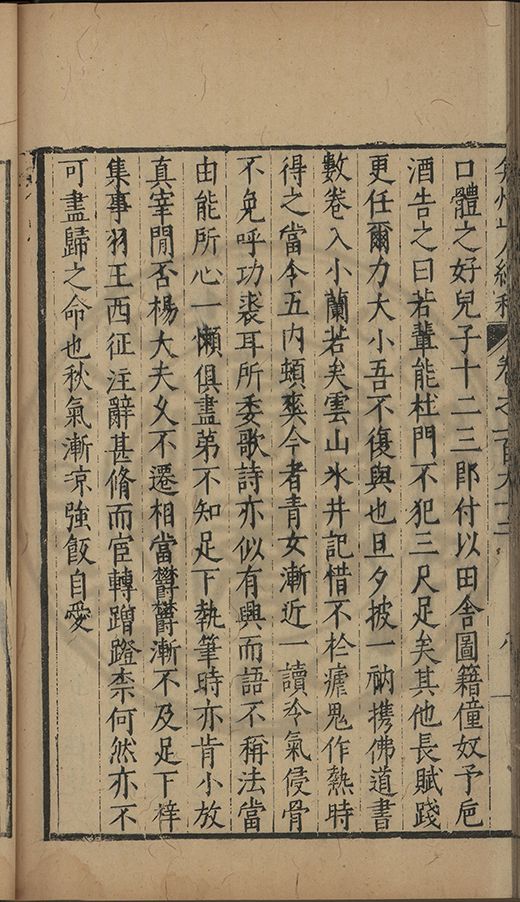 弇州山人續稿 卷之一百九十二 八
口體之好兒子十二三郎付以田舍圖籍僮奴予巵
酒告之曰若輩能杜門不犯三尺足矣其他長賦踐
更任爾力大小吾不復與也旦夕披一衲携佛道書
數卷入小蘭若矣雲山氷井記惜不於瘧鬼作熱時
得之當令五内頓爽今者青女漸近一讀冷氣侵骨
不免呼功裘耳所委歌詩亦似有興而語不稱法當
由能所心一懶俱盡弟不知足下執筆時亦肯小放
真宰閒否楊大夫乆不遷相當欝欝漸不及足下梓
集事羽王西征注辭甚脩而宦轉蹭蹬柰何然亦不
可盡歸之命也秋氣漸凉強飯自愛